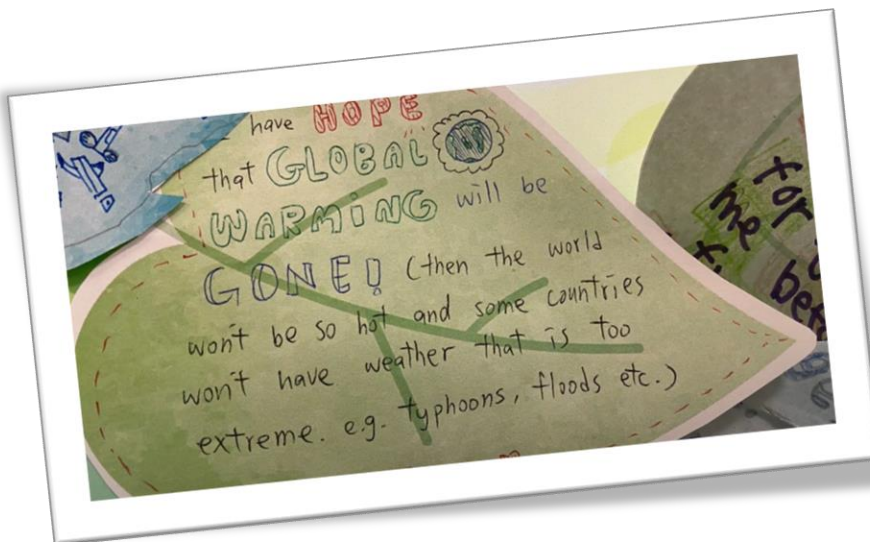 have HOPE
that GLOBAL
WARMING will be
GONE! (then the world
won't be so hot and some countries
won't have weather that is too
extreme. e.g. typhoons, floods etc.)
for
me